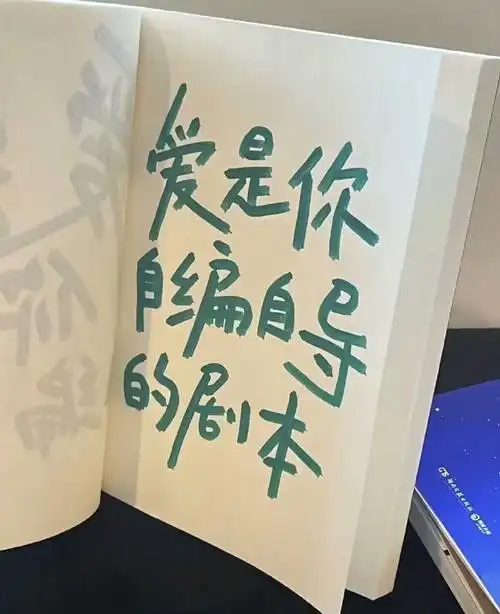 爱是你
自编自导
的剧本